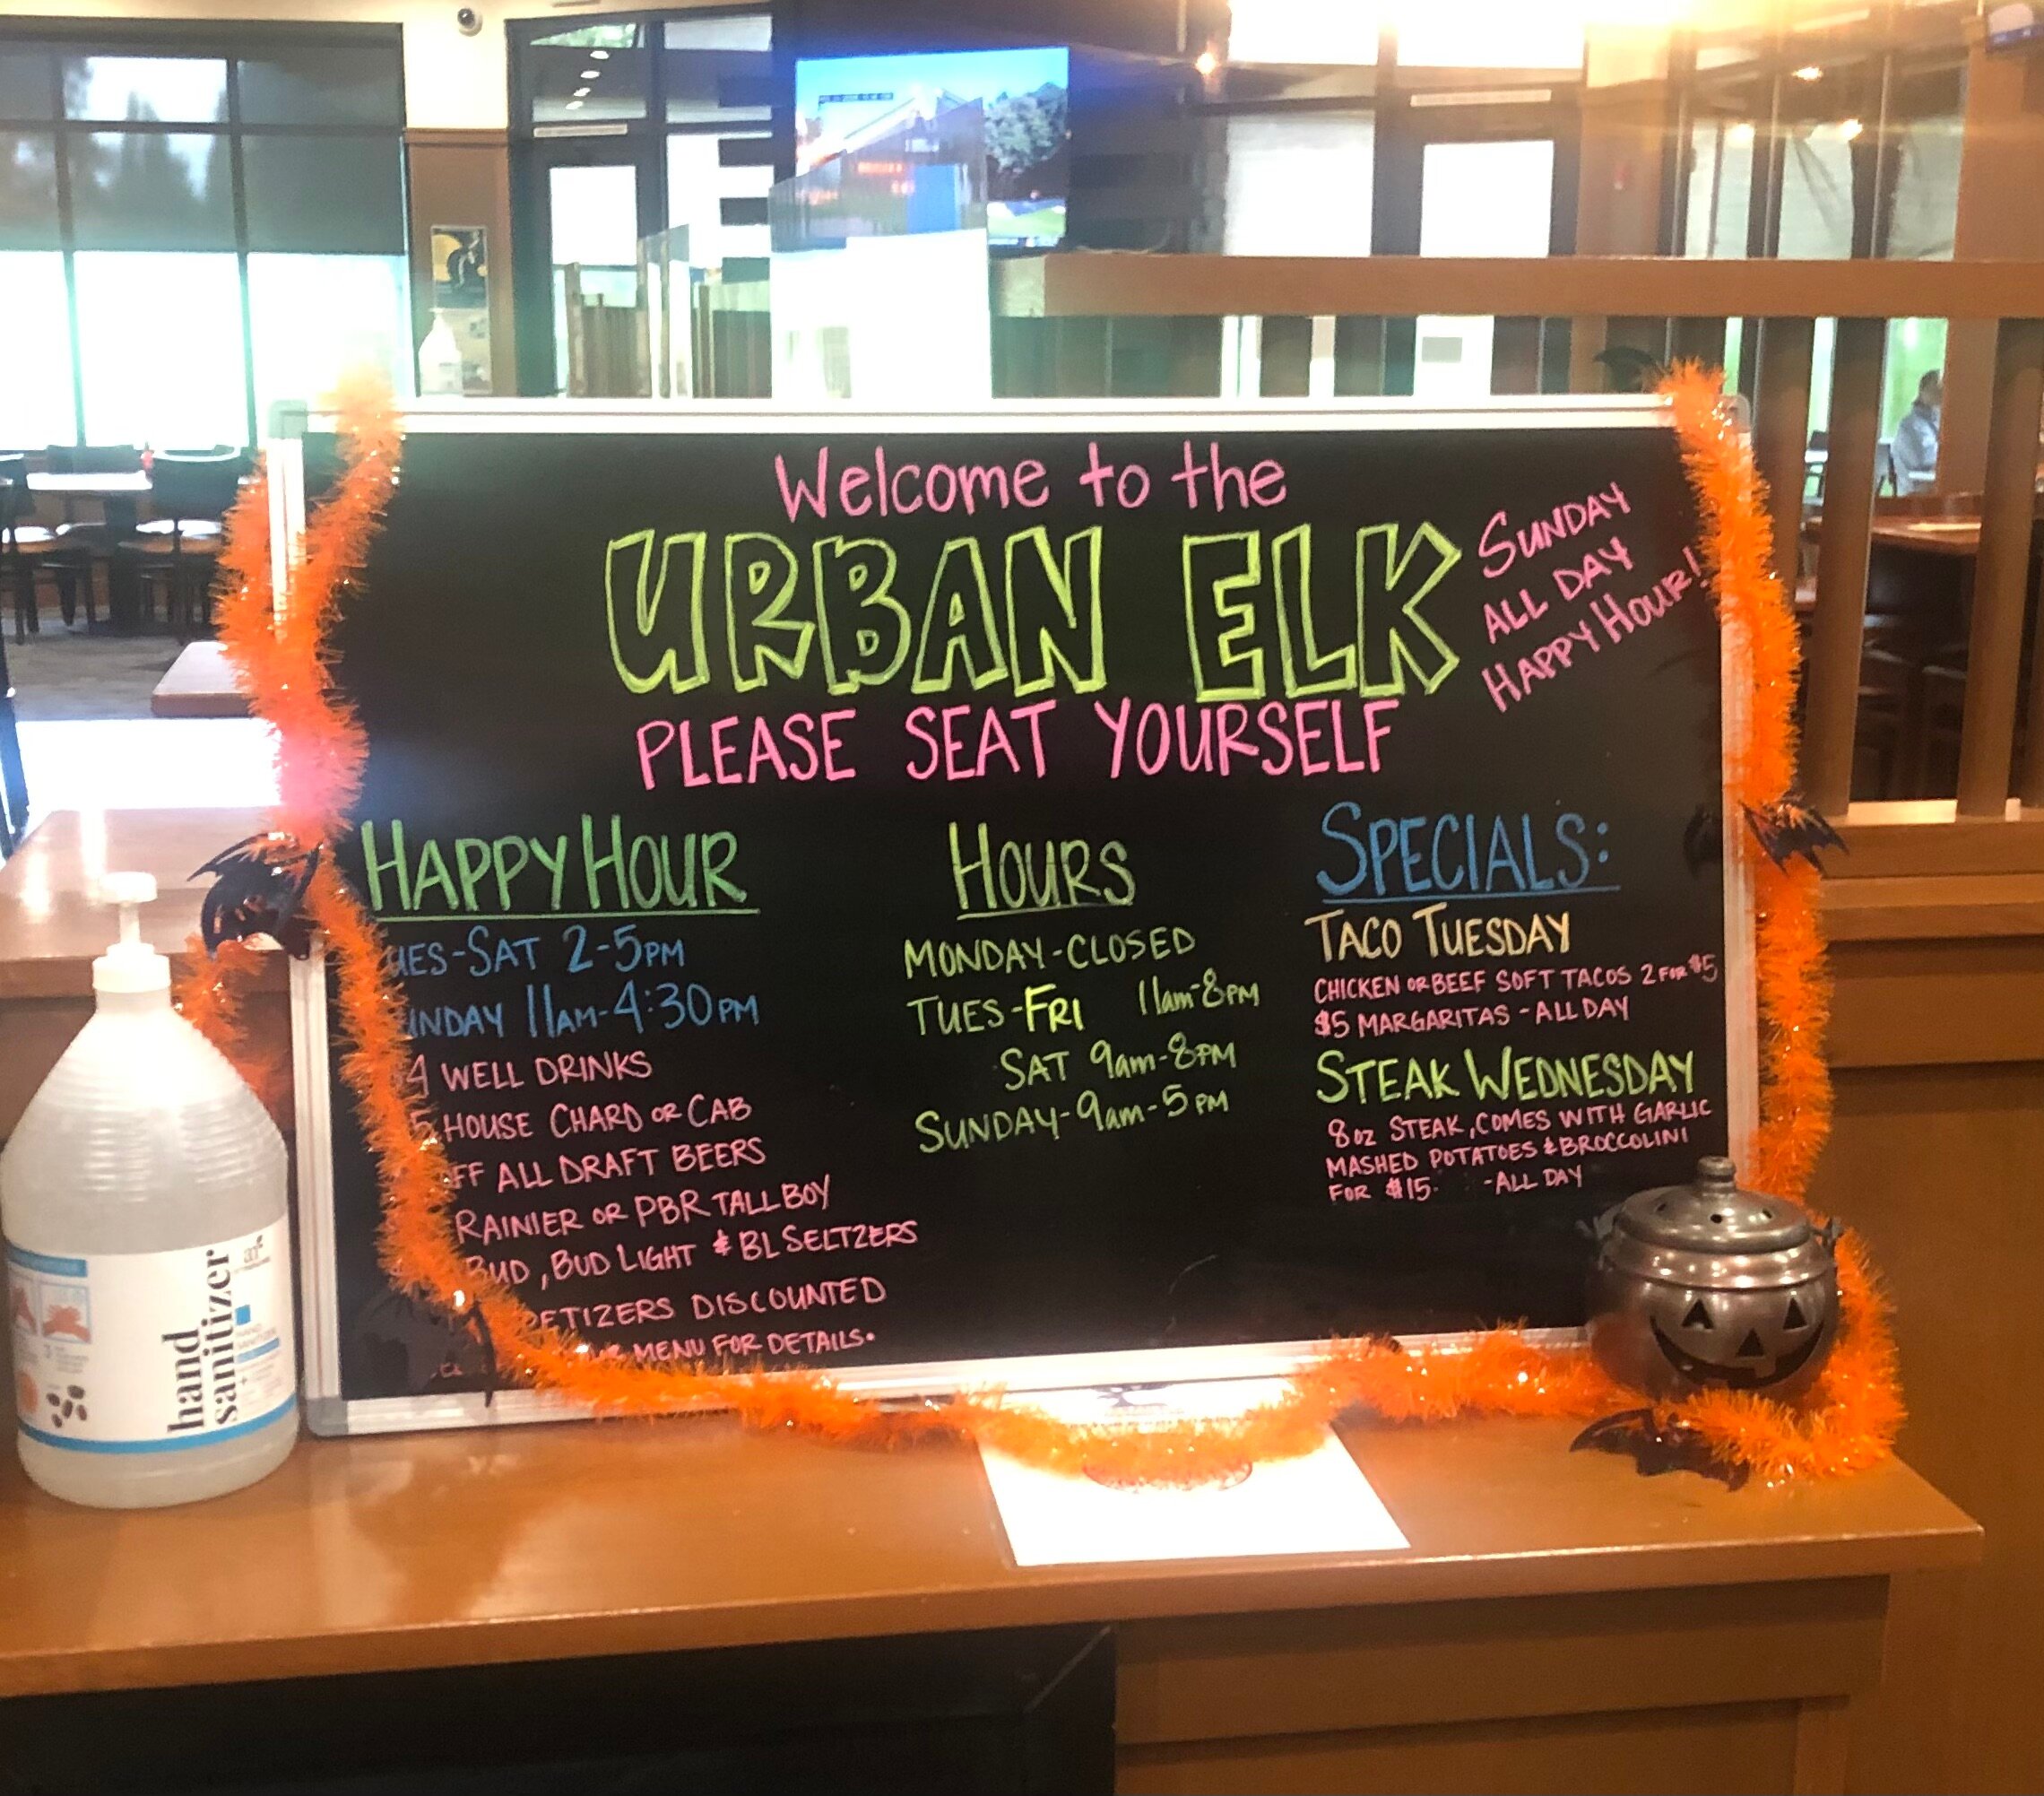 Welcome to the
URBAN ELK
PLEASE SEAT YOURSELF
SUNDAY
ALL DAY
HAPPY HOUR!
HAPPY HOUR
UES-SAT 2-5PM
UNDAY 11AM-4:30PM
4 WELL DRINKS
5 HOUSE CHARD OR CAB
FF ALL DRAFT BEERS
RAINIER OR PBR TALL BOY
BUD, BUD LIGHT & BL SELTZERS
ETIZERS DISCOUNTED
MENU FOR DETAILS.
HOURS
MONDAY-CLOSED
TUES-FRI 11am-8PM
SAT 9am-8PM
SUNDAY-9am-5PM
SPECIALS:
TACO TUESDAY
CHICKEN OR BEEF SOFT TACOS 2 FOR $5
$5 MARGARITAS - ALL DAY
STEAK WEDNESDAY
8 OZ STEAK, COMES WITH GARLIC
MASHED POTATOES & BROCCOLINI
FOR $15. -ALL DAY
hand
sanitizer